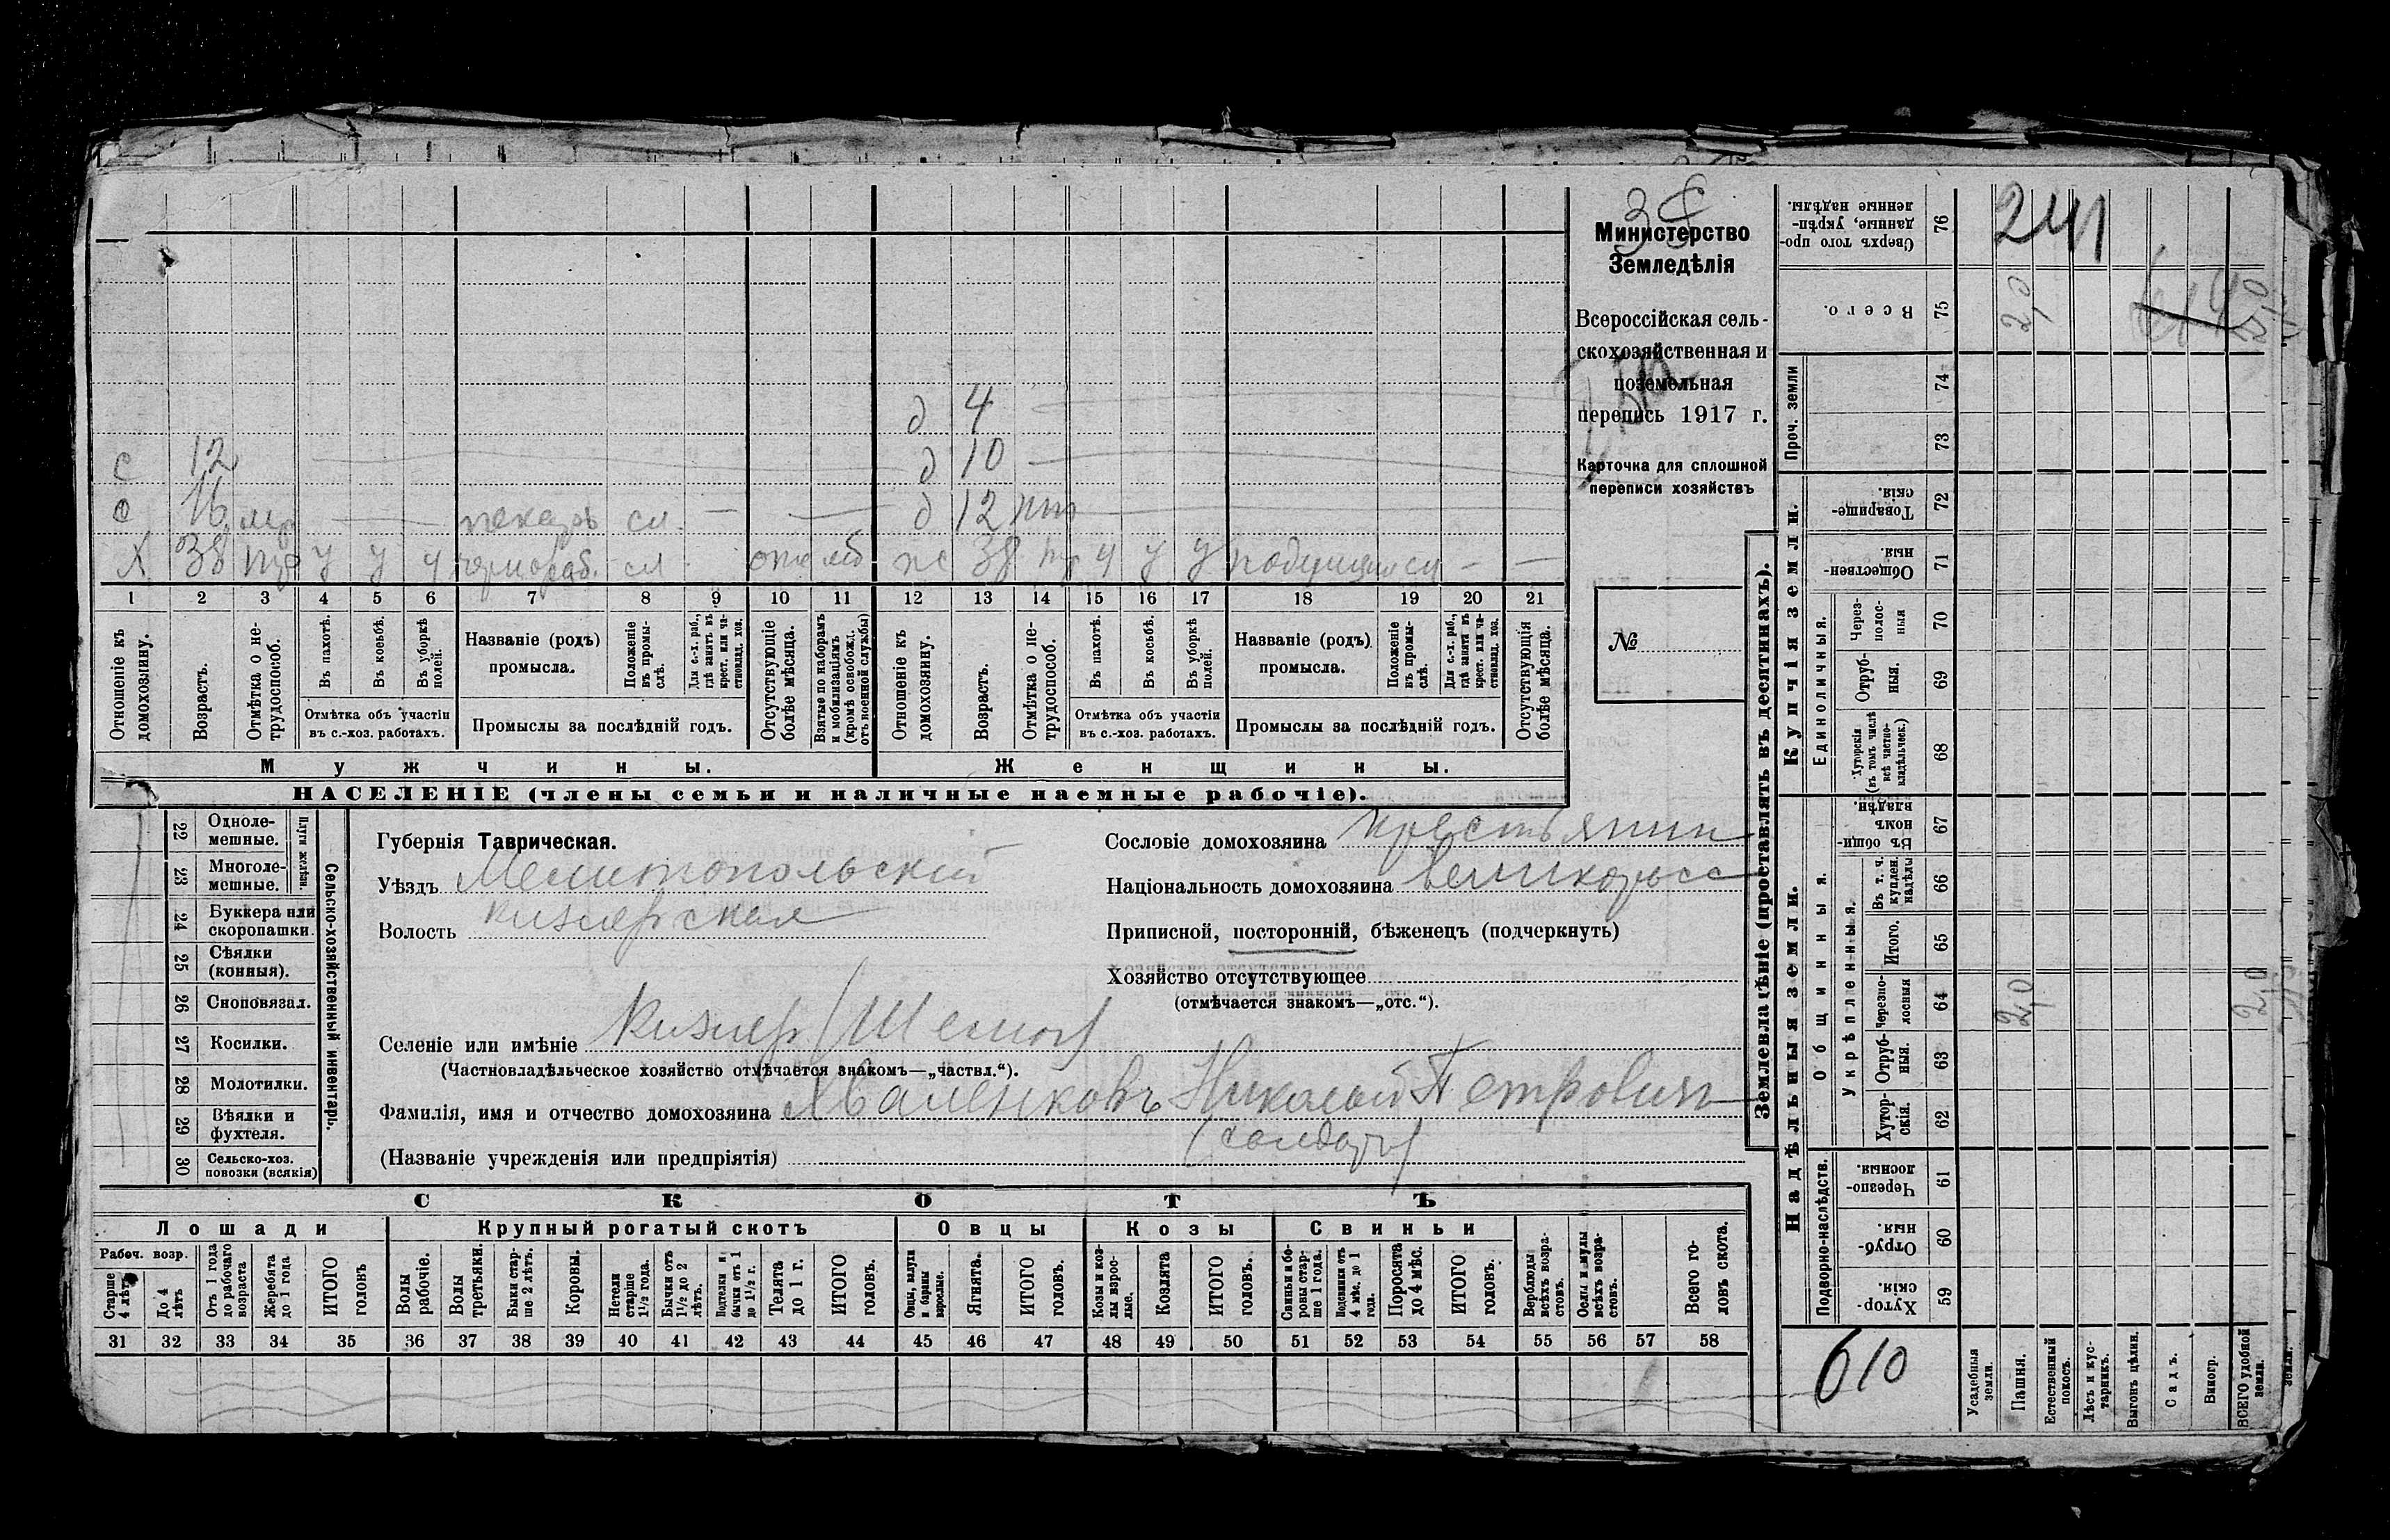 38
Министерство
Земледѣлія
Всероссійская сель-
скохозяйственная и
поземельная
перепись 1917 г.
Карточка для сплошной
переписи хозяйствъ
№
д 4
с 12 д 10
с 16 пекарь сл. — д 12
х 38 у у у чернораб. сл отс моб ж 38 у у у сл — —
1 2 3 4 5 6 7 8 9 10 11 12 13 14 15 16 17 18 19 20 21
Отношеніе къ домохозяину.
Возрастъ.
Отмѣтка о не-трудоспособ.
Въ пахотѣ.
Въ косьбѣ.
Въ уборкѣ полей.
Отмѣтка объ участіи
въ с.-хоз. работахъ.
Названіе (родъ)
промысла.
Положеніе въ промы-слѣ.
Для с.-х. раб., гдѣ занятъ въ крест. или ча-стновлад. хоз.
Промыслы за послѣдній годъ.
Отсутствующіе болѣе мѣсяца.
Взятые по наборамъ и мобилизаціямъ (кромѣ освобожд. отъ военной службы)
Отношеніе къ домохозяину.
Возрастъ.
Отмѣтка о не-трудоспособ.
Въ пахотѣ.
Въ косьбѣ.
Въ уборкѣ полей.
Отмѣтка объ участіи
въ с.-хоз. работахъ.
Названіе (родъ)
промысла.
Положеніе въ промы-слѣ.
Для с.-х. раб., гдѣ заняти въ крест. или ча-стновлад. хоз.
Промыслы за послѣдній годъ.
Отсутствующія болѣе мѣсяца.
Мужчины. Женщины.
НАСЕЛЕНІЕ (члены семьи и наличные наемные рабочіе).
Сельско-хозяйственный инвентарь.
Плуги желѣзн.
22 Однолемешные.
23 Многоле-мешные.
24 Буккера или скоропашки.
25 Сѣялки (конныя).
26 Сноповязал.
27 Косилки.
28 Молотилки.
29 Вѣялки и фухтеля.
30 Сельско-хоз. повозки (всякія)
Губернія Таврическая.
Уѣздъ Мелитопольскій
Волость Кизіярская
Сословіе домохозяина крестьянин
Національность домохозяина великоросс
Приписной, посторонній, бѣженецъ (подчеркнуть)
Хозяйство отсутствующее
(отмѣчается знакомъ—„отс.“).
Селеніе или имѣніе Кизіяр
(Частновладѣльческое хозяйство отмѣчается знакомъ—„частвл.“).
Фамилія, имя и отчество домохозяина Хваленковъ Николай Петровичъ
(солдат)
(Названіе учрежденія или предпріятія)
СКОТЪ
Лошади Крупный рогатый скотъ Овцы Козы Свиньи
Рабоч. возр.
Старше 4 лѣтъ
До 4 лѣтъ
Отъ 1 года до рабочаго возраста
Жеребята до 1 года
ИТОГО головъ
Волы рабочіе.
Волы третьяки.
Быки стар-ше 2 лѣтъ.
Коровы.
Нетели старше 1½ года.
Бычки отъ 1½ до 2 лѣтъ.
Подтелки и бычки отъ 1 до 1½ г.
Телята до 1 г.
ИТОГО головъ.
Овцы, валухи и бараны взрослые.
Ягнята.
ИТОГО головъ.
Козы и коз-лы взрос-лые.
Козлята
ИТОГО головъ.
Свиньи и бо-ровы стар-ше 1 года.
Подсвинки отъ 4 мѣс. до 1 года.
Поросята до 4 мѣс.
ИТОГО головъ.
Верблюды всѣхъ возра-стовъ.
Ослы и мулы всѣхъ возра-стовъ.
Всего го-ловъ скота.
31 32 33 34 35 36 37 38 39 40 41 42 43 44 45 46 47 48 49 50 51 52 53 54 55 56 57 58
Землевладѣніе (проставлять въ десятинахъ).
Купчія земли.
Надѣльныя земли.
Сверхъ того про-данные, укрѣп-ленные надѣлы. 76 241
Всего. 75 2,0 2,0
Проч. земли 74
73
Товарище-скія. 72
Обществен-ныя. 71
Единоличныя.
Через-полос-ныя 70
Отруб-ныя. 69
Хуторскія (въ томъ числѣ всѣ частно-владѣльческ.) 68
Общинныя.
Въ общин-номъ владѣн. 67
Укрѣпленныя.
Въ т. ч. куплен. надѣлы 66
Итого. 65
Черезпо-лосныя 64 2,0 2,0
Отруб-ныя. 63
Хутор-скія. 62
Подворно-наслѣдств.
Черезпо-лосныя. 61
Отруб-ныя. 60
Хутор-скія. 59
610
Усадебныя земли.
Пашня.
Естественный покосъ.
Лѣсъ и кус-тарникъ.
Выгонъ цѣлин.
Садъ.
Виногр.
ВСЕГО удобной земли.
земли.